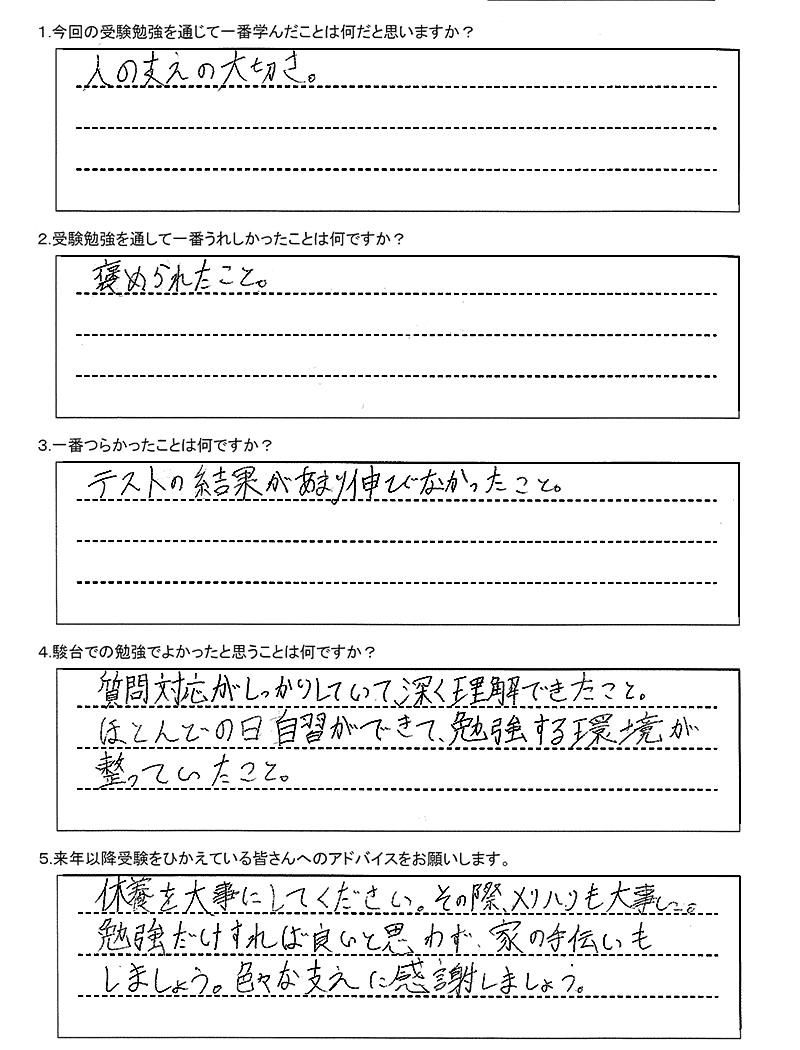 1.今回の受験勉強を通じて一番学んだことは何だと思いますか？
人の支えの大切さ。
2.受験勉強を通して一番うれしかったことは何ですか？
褒められたこと。
3.一番つらかったことは何ですか？
テストの結果があまり伸びなかったこと。
4.駿台での勉強でよかったと思うことは何ですか？
質問対応がしっかりしていて、深く理解できたこと。
ほとんどの日自習ができて、勉強する環境が
整っていたこと。
5.来年以降受験をひかえている皆さんへのアドバイスをお願いします。
休養を大事にしてください。その際、メリハリも大事に。
勉強だけすれば良いと思わず、家の手伝いも
しましょう。色々な支えに感謝しましょう。